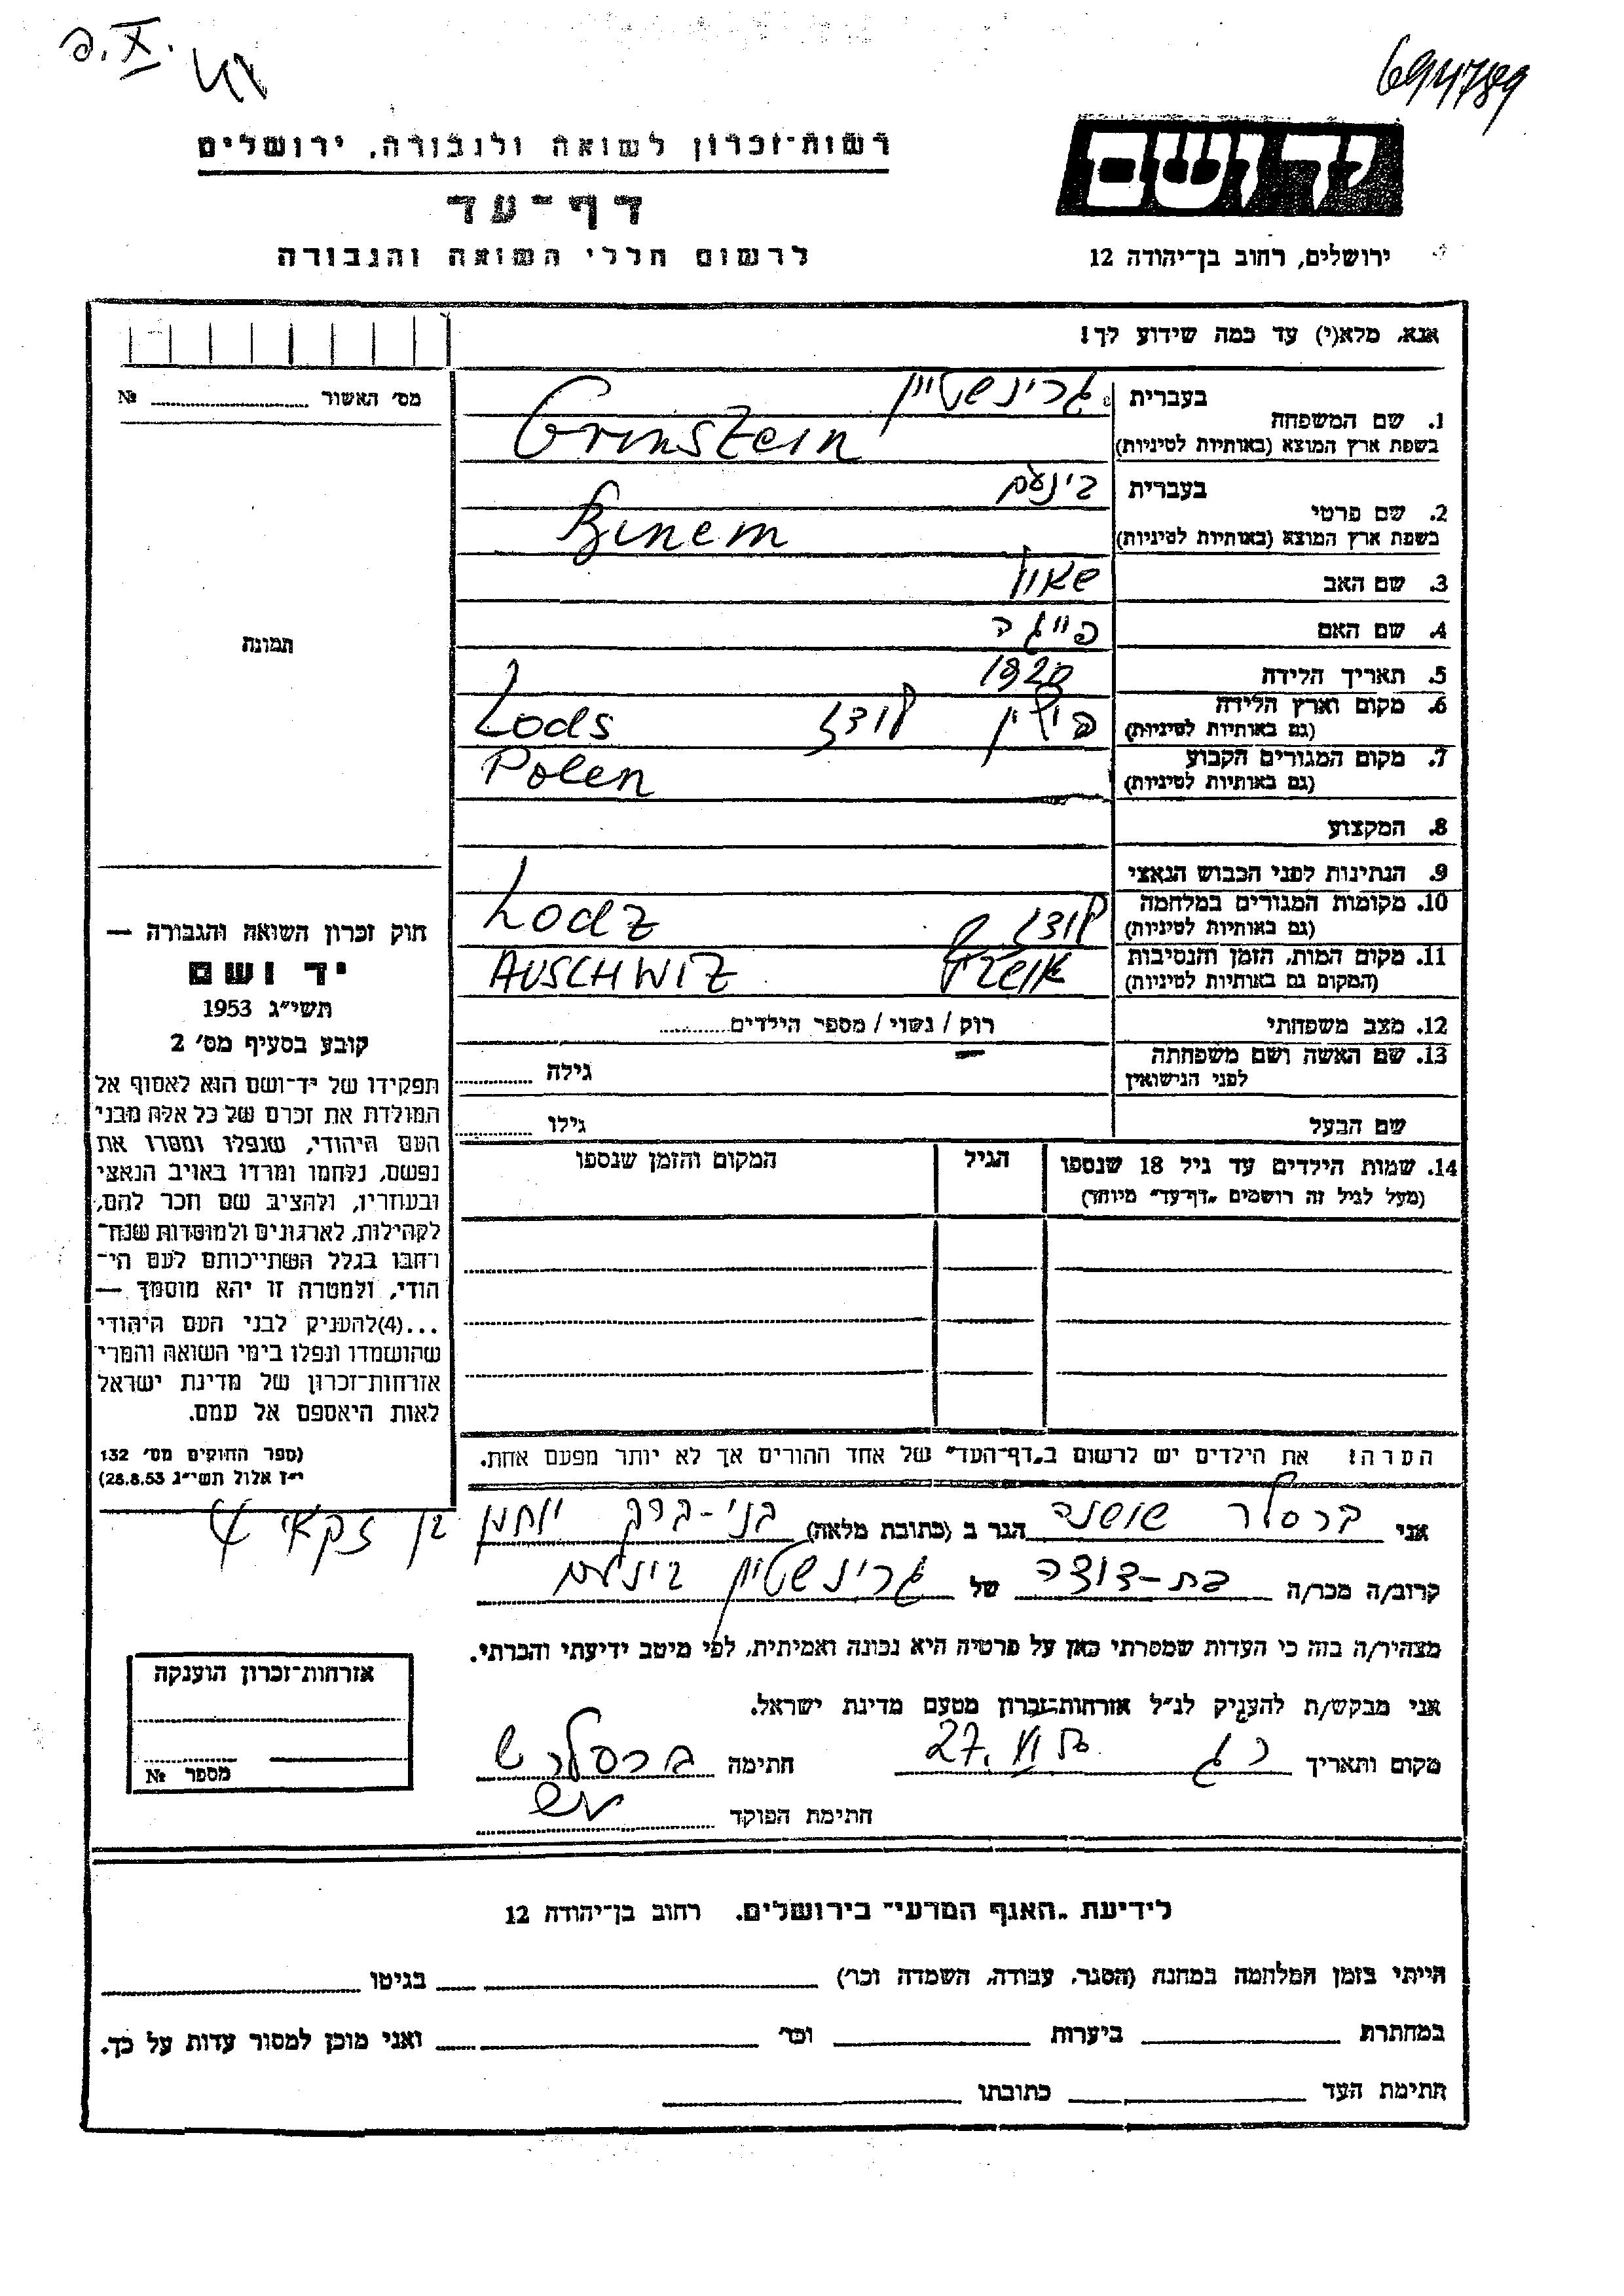 694789
רשות־זכרון לשואה ולגבורה, ירושלים
יד ושם
דף־עד
לרשום חללי השואה והגבורה
ירושלים, רחוב בן־יהודה 12
אנא, מלא(י) עד כמה שידוע לך!
מס׳ האשור № 
בעברית גרינשטיין
1. שם המשפחה
בשפת ארץ המוצא (באותיות לטיניות) Grinsztein
בעברית בינעם
2. שם פרטי
בשפת ארץ המוצא (באותיות לטיניות) Binem
3. שם האב שאול
4. שם האם פייגה
תמונה
5. תאריך הלידה 1920
6. מקום וארץ הלידה פולין לודז Lods
(גם באותיות לטיניות)
7. מקום המגורים הקבוע Polen
(גם באותיות לטיניות)
8. המקצוע
9. הנתינות לפני הכבוש הנאצי
10. מקומות המגורים במלחמה לודז Lodz
(גם באותיות לטיניות)
11. מקום המות, הזמן והנסיבות AUSCHWIZ
(המקום גם באותיות לטיניות)
12. מצב משפחתי רוק / נשוי / מספר הילדים
13. שם האשה ושם משפחתה
לפני הנישואין גילה
שם הבעל גילו
14. שמות הילדים עד גיל 18 שנספו הגיל המקום והזמן שנספו
(מעל לגיל זה רושמים „דף־עד״ מיוחד)
הערה: את הילדים יש לרשום ב„דף־העד״ של אחד ההורים אך לא יותר מפעם אחת.
חוק זכרון השואה והגבורה —
יד ושם
תשי״ג 1953
קובע בסעיף מס׳ 2
תפקידו של יד־ושם הוא לאסוף אל
המולדת את זכרם של כל אלה מבני
העם היהודי, שנפלו ומסרו את
נפשם, נלחמו ומרדו באויב הנאצי
ובעוזריו, ולהציב שם וזכר להם,
לקהילות, לארגונים ולמוסדות שנח־
רבו בגלל השתייכותם לעם הי־
הודי, ולמטרה זו יהא מוסמך —
...(4)להעניק לבני העם היהודי
שהושמדו ונפלו בימי השואה והמרי
אזרחות־זכרון של מדינת ישראל
לאות היאספם אל עמם.
(ספר החוקים מס׳ 132
י״ז אלול תשי״ג 28.8.53)
אני ברסלר שושנה הגר ב (כתובת מלאה) בני-ברק יוחנן בן זכאי 4
קרוב/ה מכר/ה בת-דודה של גרינשטיין בינעם
מצהיר/ה בזה כי העדות שמסרתי כאן על פרטיה היא נכונה ואמיתית, לפי מיטב ידיעתי והכרתי.
אני מבקש/ת להעניק לנ״ל אזרחות־זכרון מטעם מדינת ישראל.
מקום ותאריך רג 27. חתימה ברסלר ש
חתימת הפוקד
אזרחות־זכרון הוענקה
מספר №
לידיעת „האגף המדעי״ בירושלים. רחוב בן־יהודה 12
הייתי בזמן המלחמה במחנה (הסגר, עבודה, השמדה וכו׳) בגיטו
במחתרת ביערות וכו׳ ואני מוכן למסור עדות על כך.
חתימת העד כתובתו